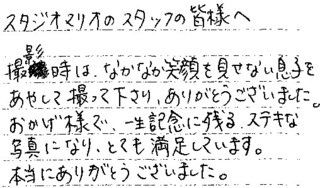 スタジオマリオのスタッフの皆様へ
撮影時は、なかなか笑顔を見せない息子を
あやして撮って下さり、ありがとうございました。
おかげ様で、一生記念に残る、ステキな
写真になり、とても満足しています。
本当にありがとうございました。